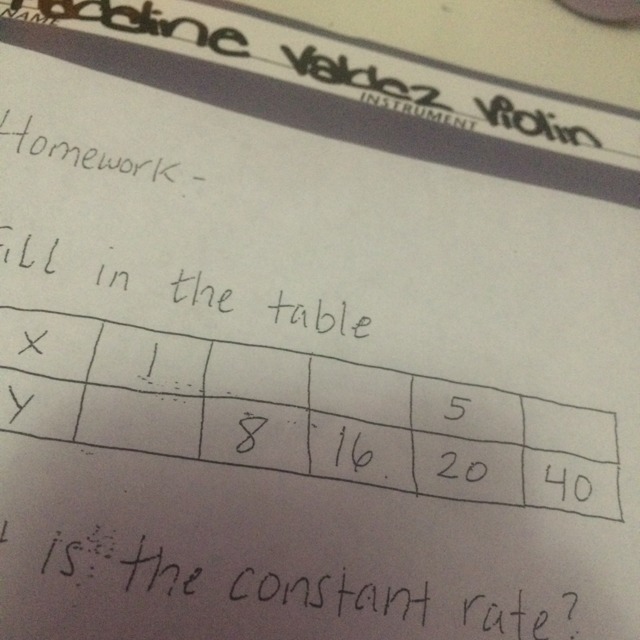 Madeline Valdez Violin
NAME INSTRUMENT
Homework-
Fill in the table
x 1 5
y 8 16 20 40
is the constant rate?